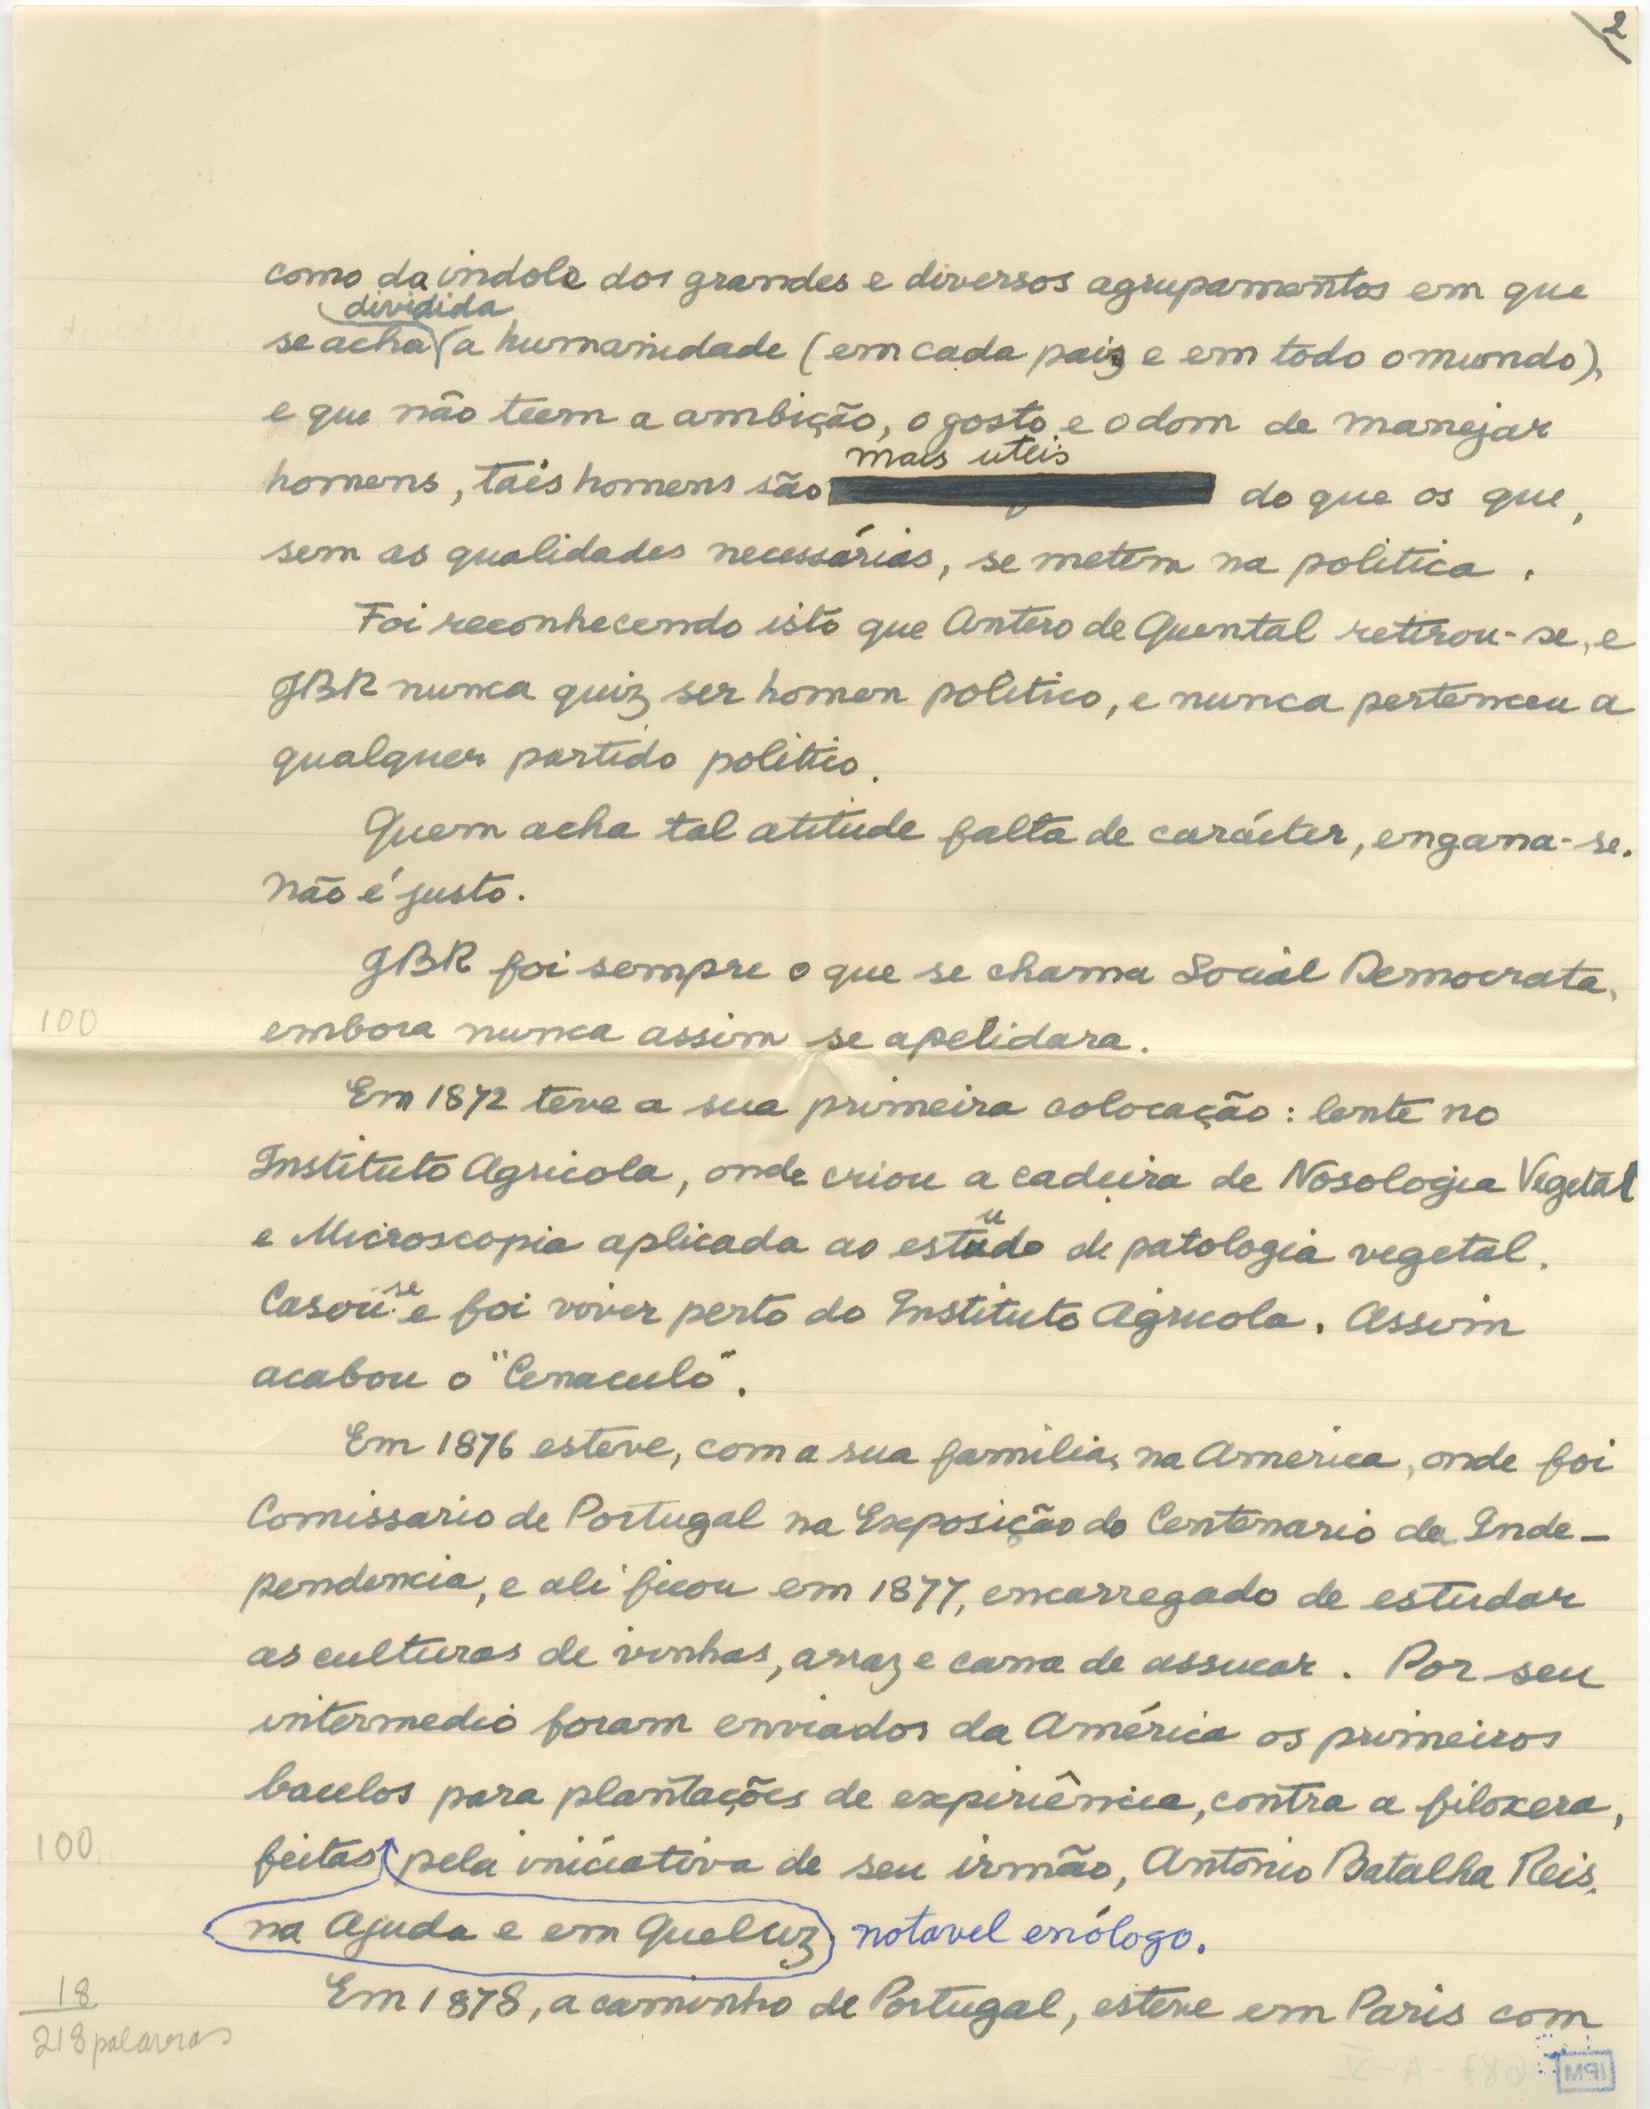 2
como da indole dos grandes e diversos agrupamentos em que
dividida
se acha a humanidade (em cada paiz e em todo o mundo),
e que não teem a ambição, o gosto e o dom de manejar
mais uteis
homens, tais homens são do que os que,
sem as qualidades necessárias, se metem na politica.
Foi reconhecendo isto que Antero de Quental retirou-se, e
JBR nunca quiz ser homem politico, e nunca pertenceu a
qualquer partido politico.
Quem acha tal atitude falta de carácter, engana-se.
Não é justo.
JBR foi sempre o que se chama Social Democrata,
100
embora nunca assim se apelidara.
Em 1872 teve a sua primeira colocação: lente no
Instituto Agricola, onde criou a cadeira de Nosologia Vegetal
u
e Microscopia aplicada ao estudo de patologia vegetal.
Casou-se e foi viver perto do Instituto Agricola. Assim
acabou o "Cenaculo".
Em 1876 esteve, com a sua familia, na America, onde foi
Comissario de Portugal na Exposição do Centenario da Inde-
pendencia, e ali ficou em 1877, encarregado de estudar
as culturas de vinhas, arraz e cana de assucar. Por seu
intermedio foram enviados da América os primeiros
bacelos para plantações de expiriência, contra a filoxera,
100
feitas pela iniciativa de seu irmão, António Batalha Reis,
na Ajuda e em Queluz, notavel enólogo.
18
Em 1878, a caminho de Portugal, esteve em Paris com
218 palavras
687-A-V
IPM